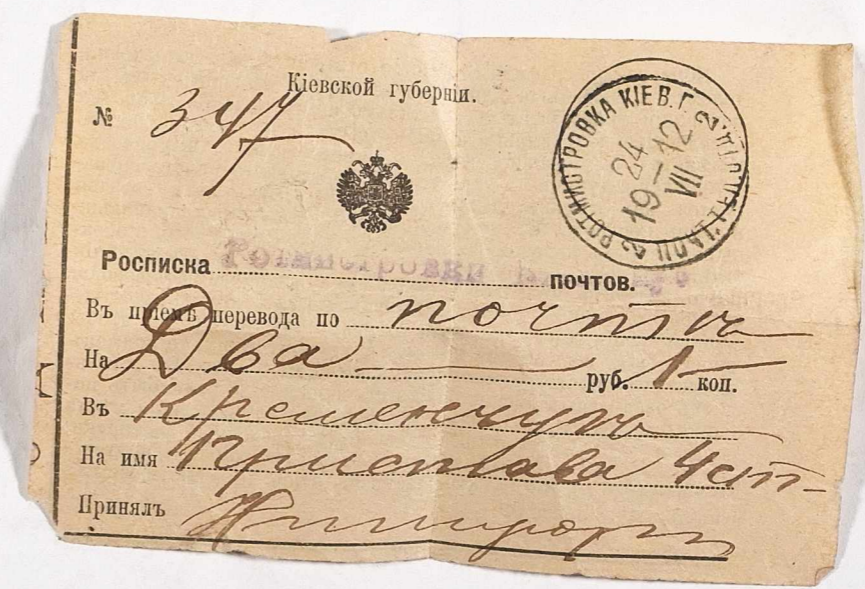 Кіевской губерніи.
№ 347
РОТМИСТРОВКА КІЕВ. Г.
24
19–12
VII
Росписка Ротмистровки почтов.
Въ пріемѣ перевода по почтѣ
На Два руб. 1 коп.
Въ Кременчугъ
На имя
Принялъ